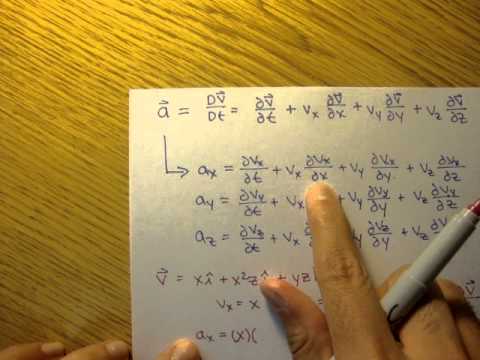 a⃗ = DV⃗/Dt = ∂V⃗/∂t + vₓ ∂V⃗/∂x + v_y ∂V⃗/∂y + v_z ∂V⃗/∂z
aₓ = ∂vₓ/∂t + vₓ ∂vₓ/∂x + v_y ∂vₓ/∂y + v_z ∂vₓ/∂z
a_y = ∂v_y/∂t + vₓ v_y ∂v_y/∂y + v_z ∂v_y/∂z
a_z = ∂v_z/∂t + vₓ v_y ∂v_z/∂y + v_z
V⃗ = xî + x²z + yz
vₓ = x =
aₓ = (x)(